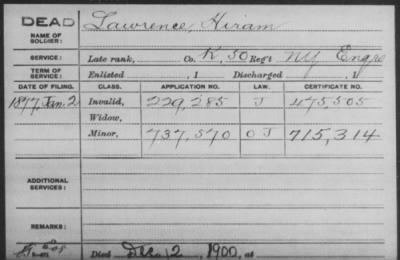 DEAD
NAME OF SOLDIER:
Lawrence, Hiram
SERVICE:
Late rank, Co. K, 50 Reg't NY Engrs
TERM OF SERVICE:
Enlisted , 1 Discharged , 1
DATE OF FILING. CLASS. APPLICATION NO. LAW. CERTIFICATE NO.
1877, Jan. 2 Invalid, 229,285 J 475,505
Widow,
Minor, 737,570 O J 715,314
ADDITIONAL SERVICES:
REMARKS:
Died Dec. 12, 1900, at